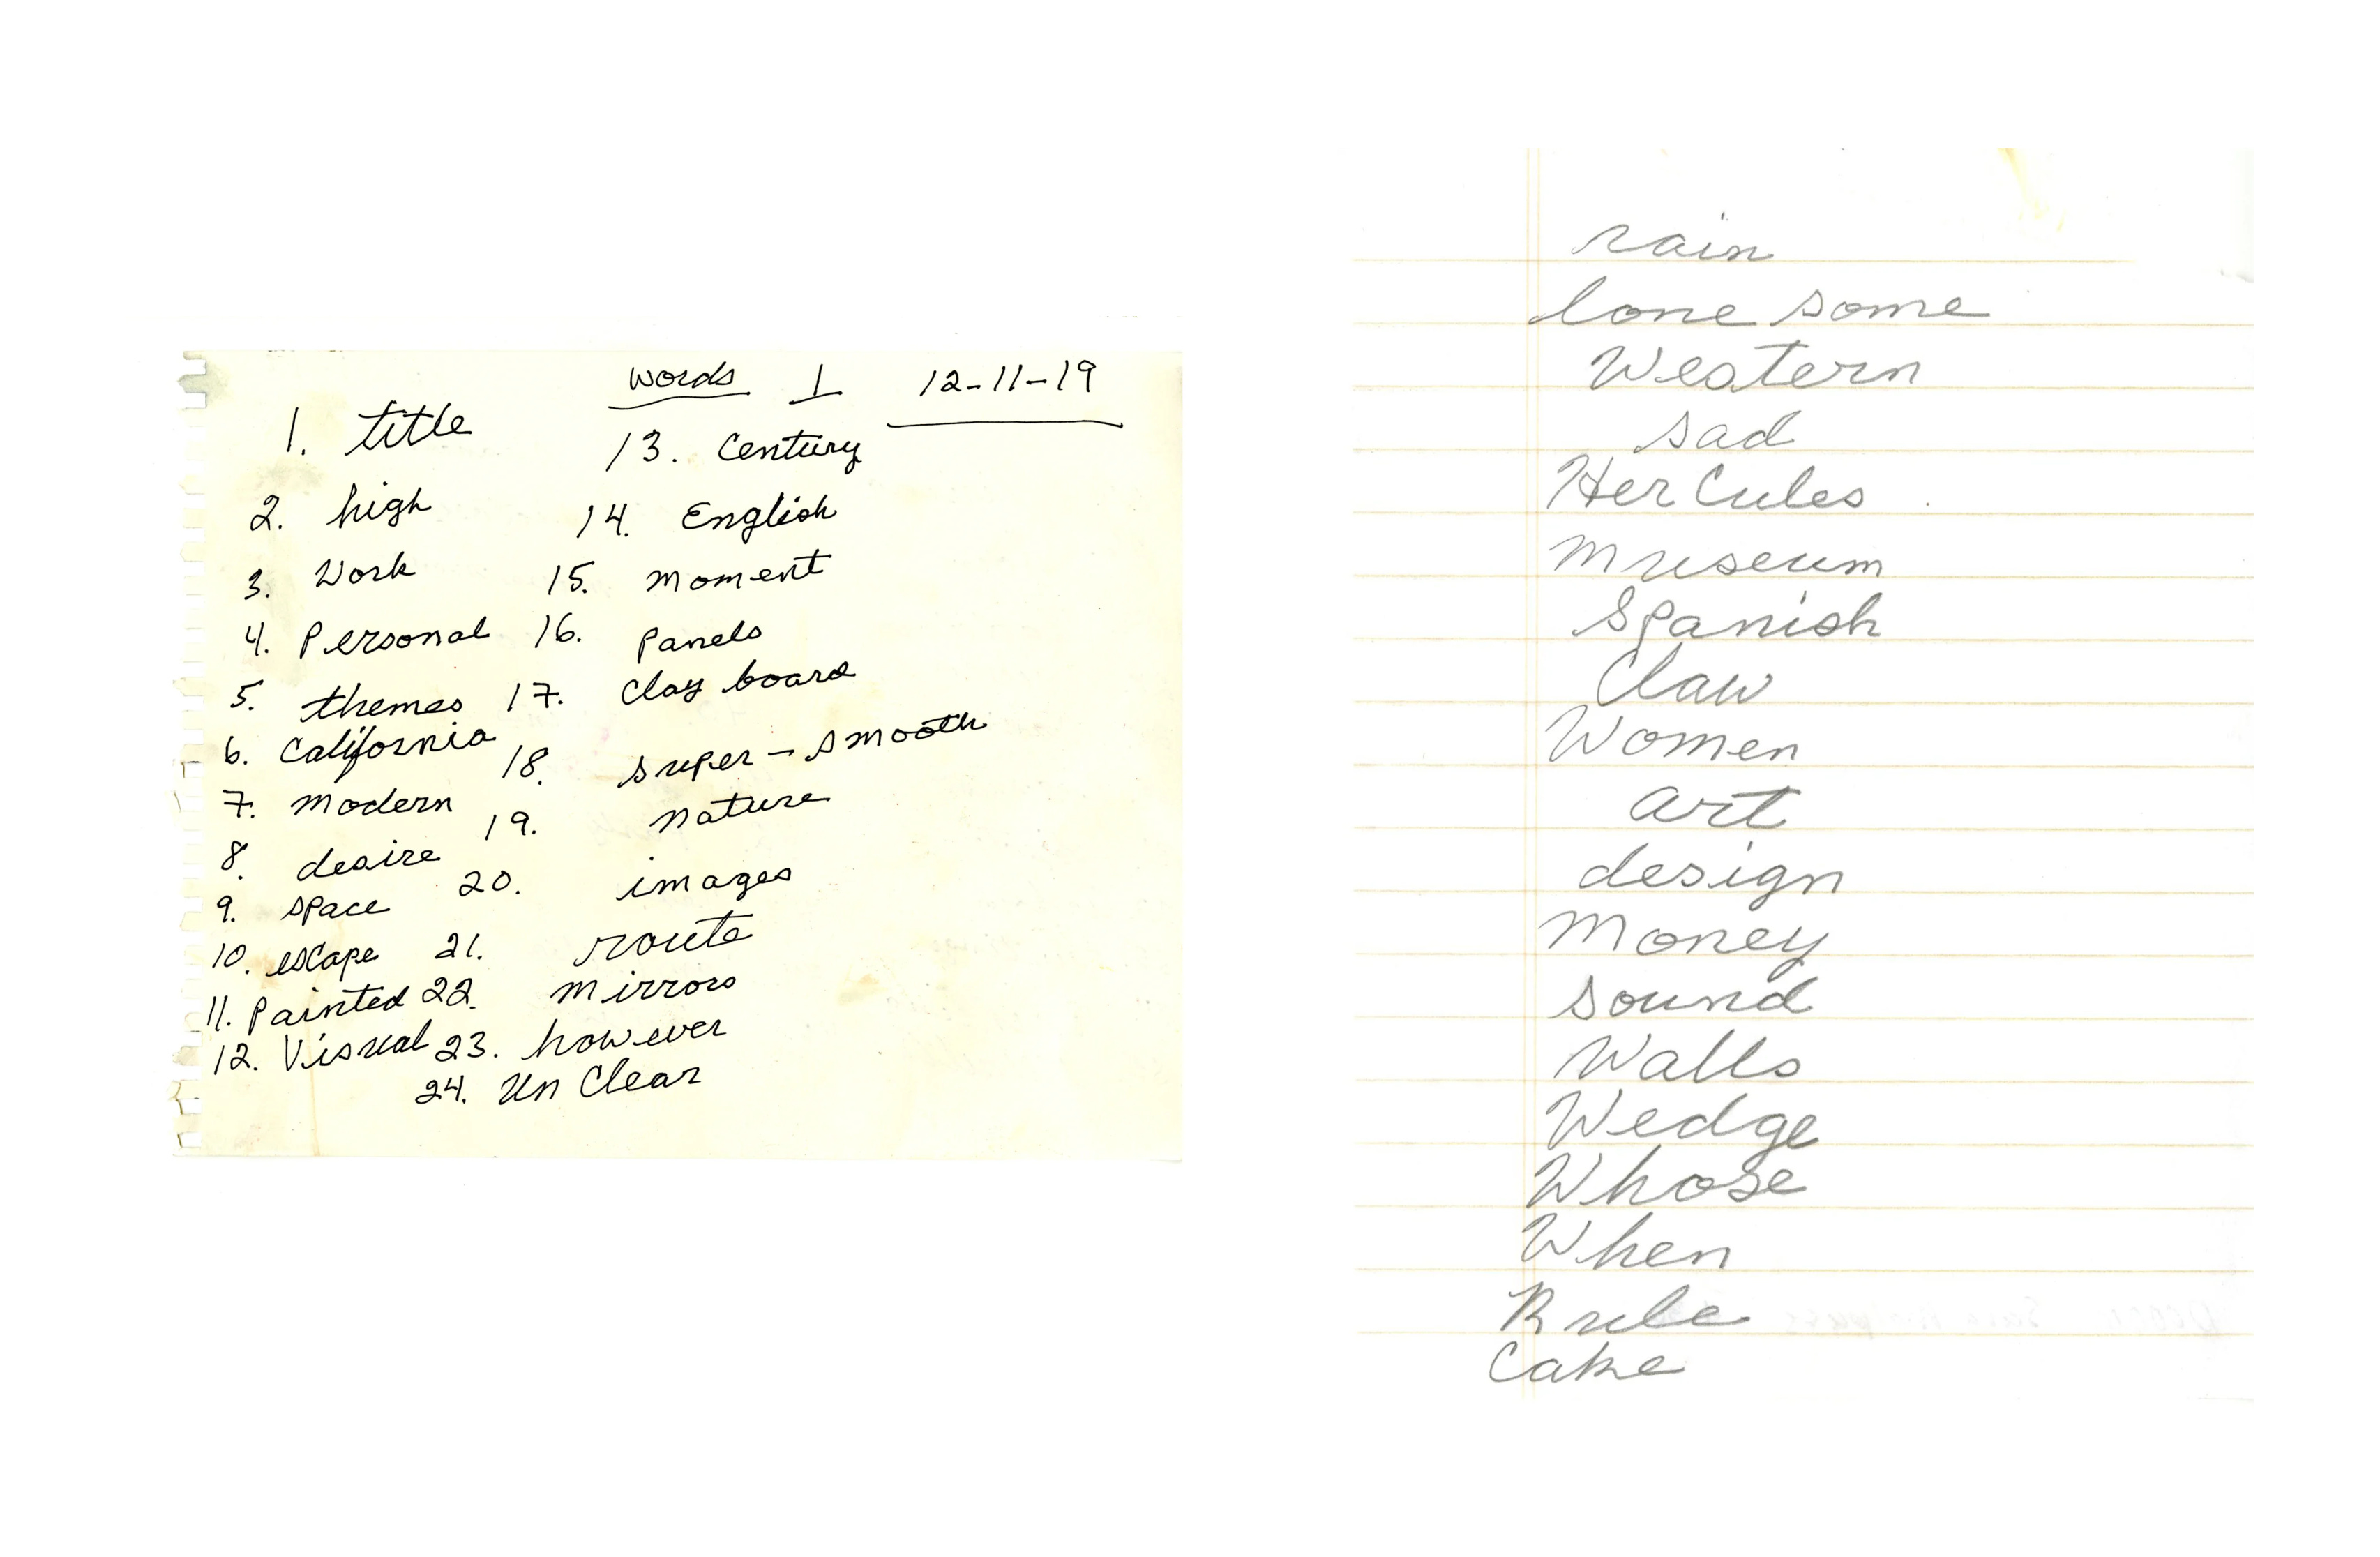 words 1 12-11-19
1. title
2. high
3. Work
4. Personal
5. themes
6. California
7. modern
8. desire
9. space
10. escape
11. Painted
12. Visual
13. Century
14. English
15. moment
16. Panels
17. Clay board
18. super-smooth
19. nature
20. images
21. route
22. mirrors
23. however
24. Un Clear
rain
lone some
Western
sad
HerCules
museum
Spanish
Claw
Women
art
design
Money
sound
Walls
Wedge
Whose
When
Rule
Cake